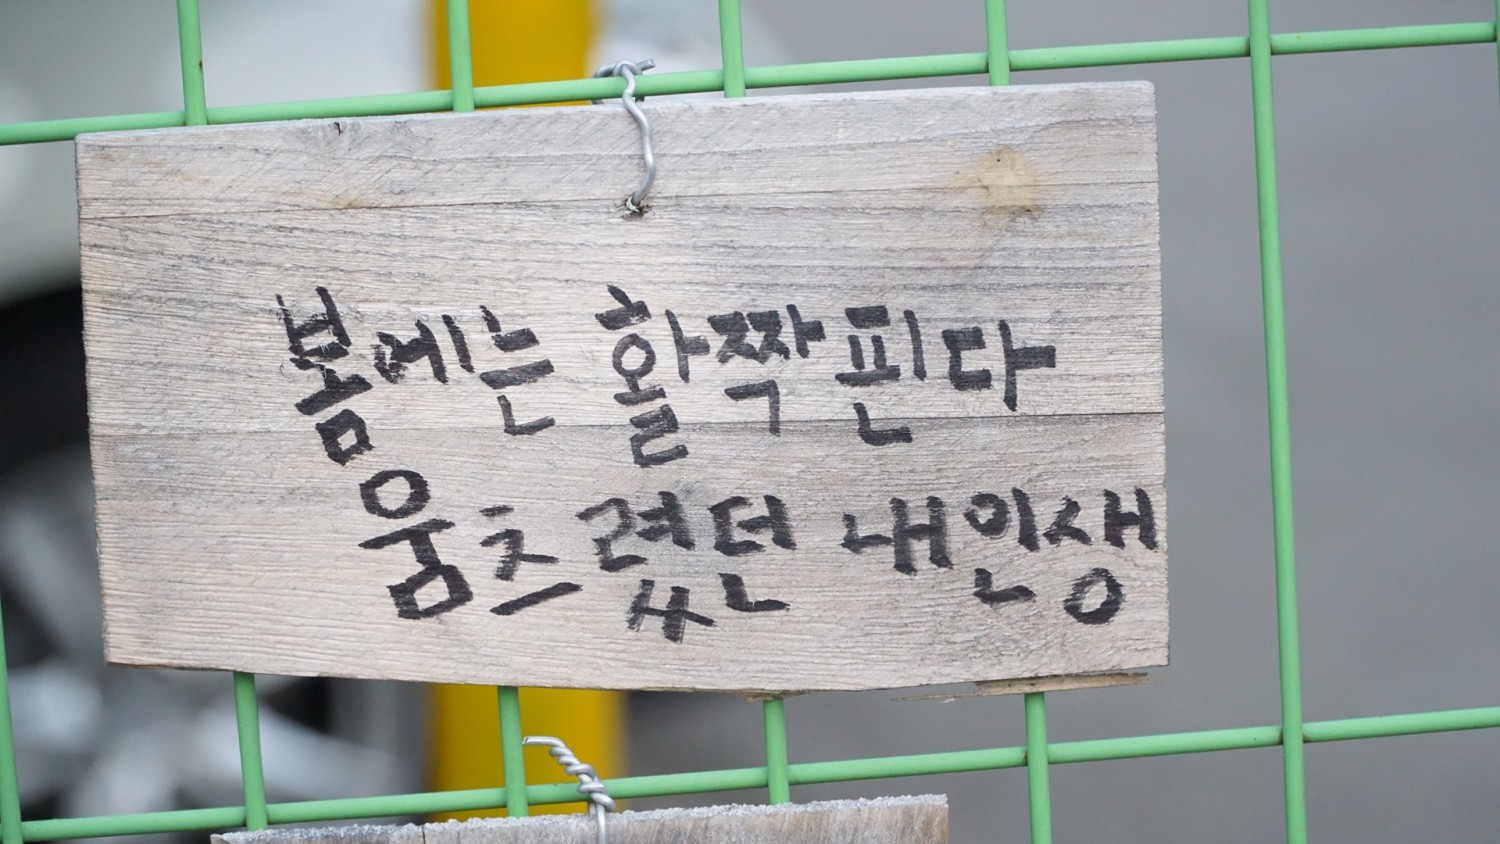 봄에는 활짝핀다
웅츠렸던 내인생